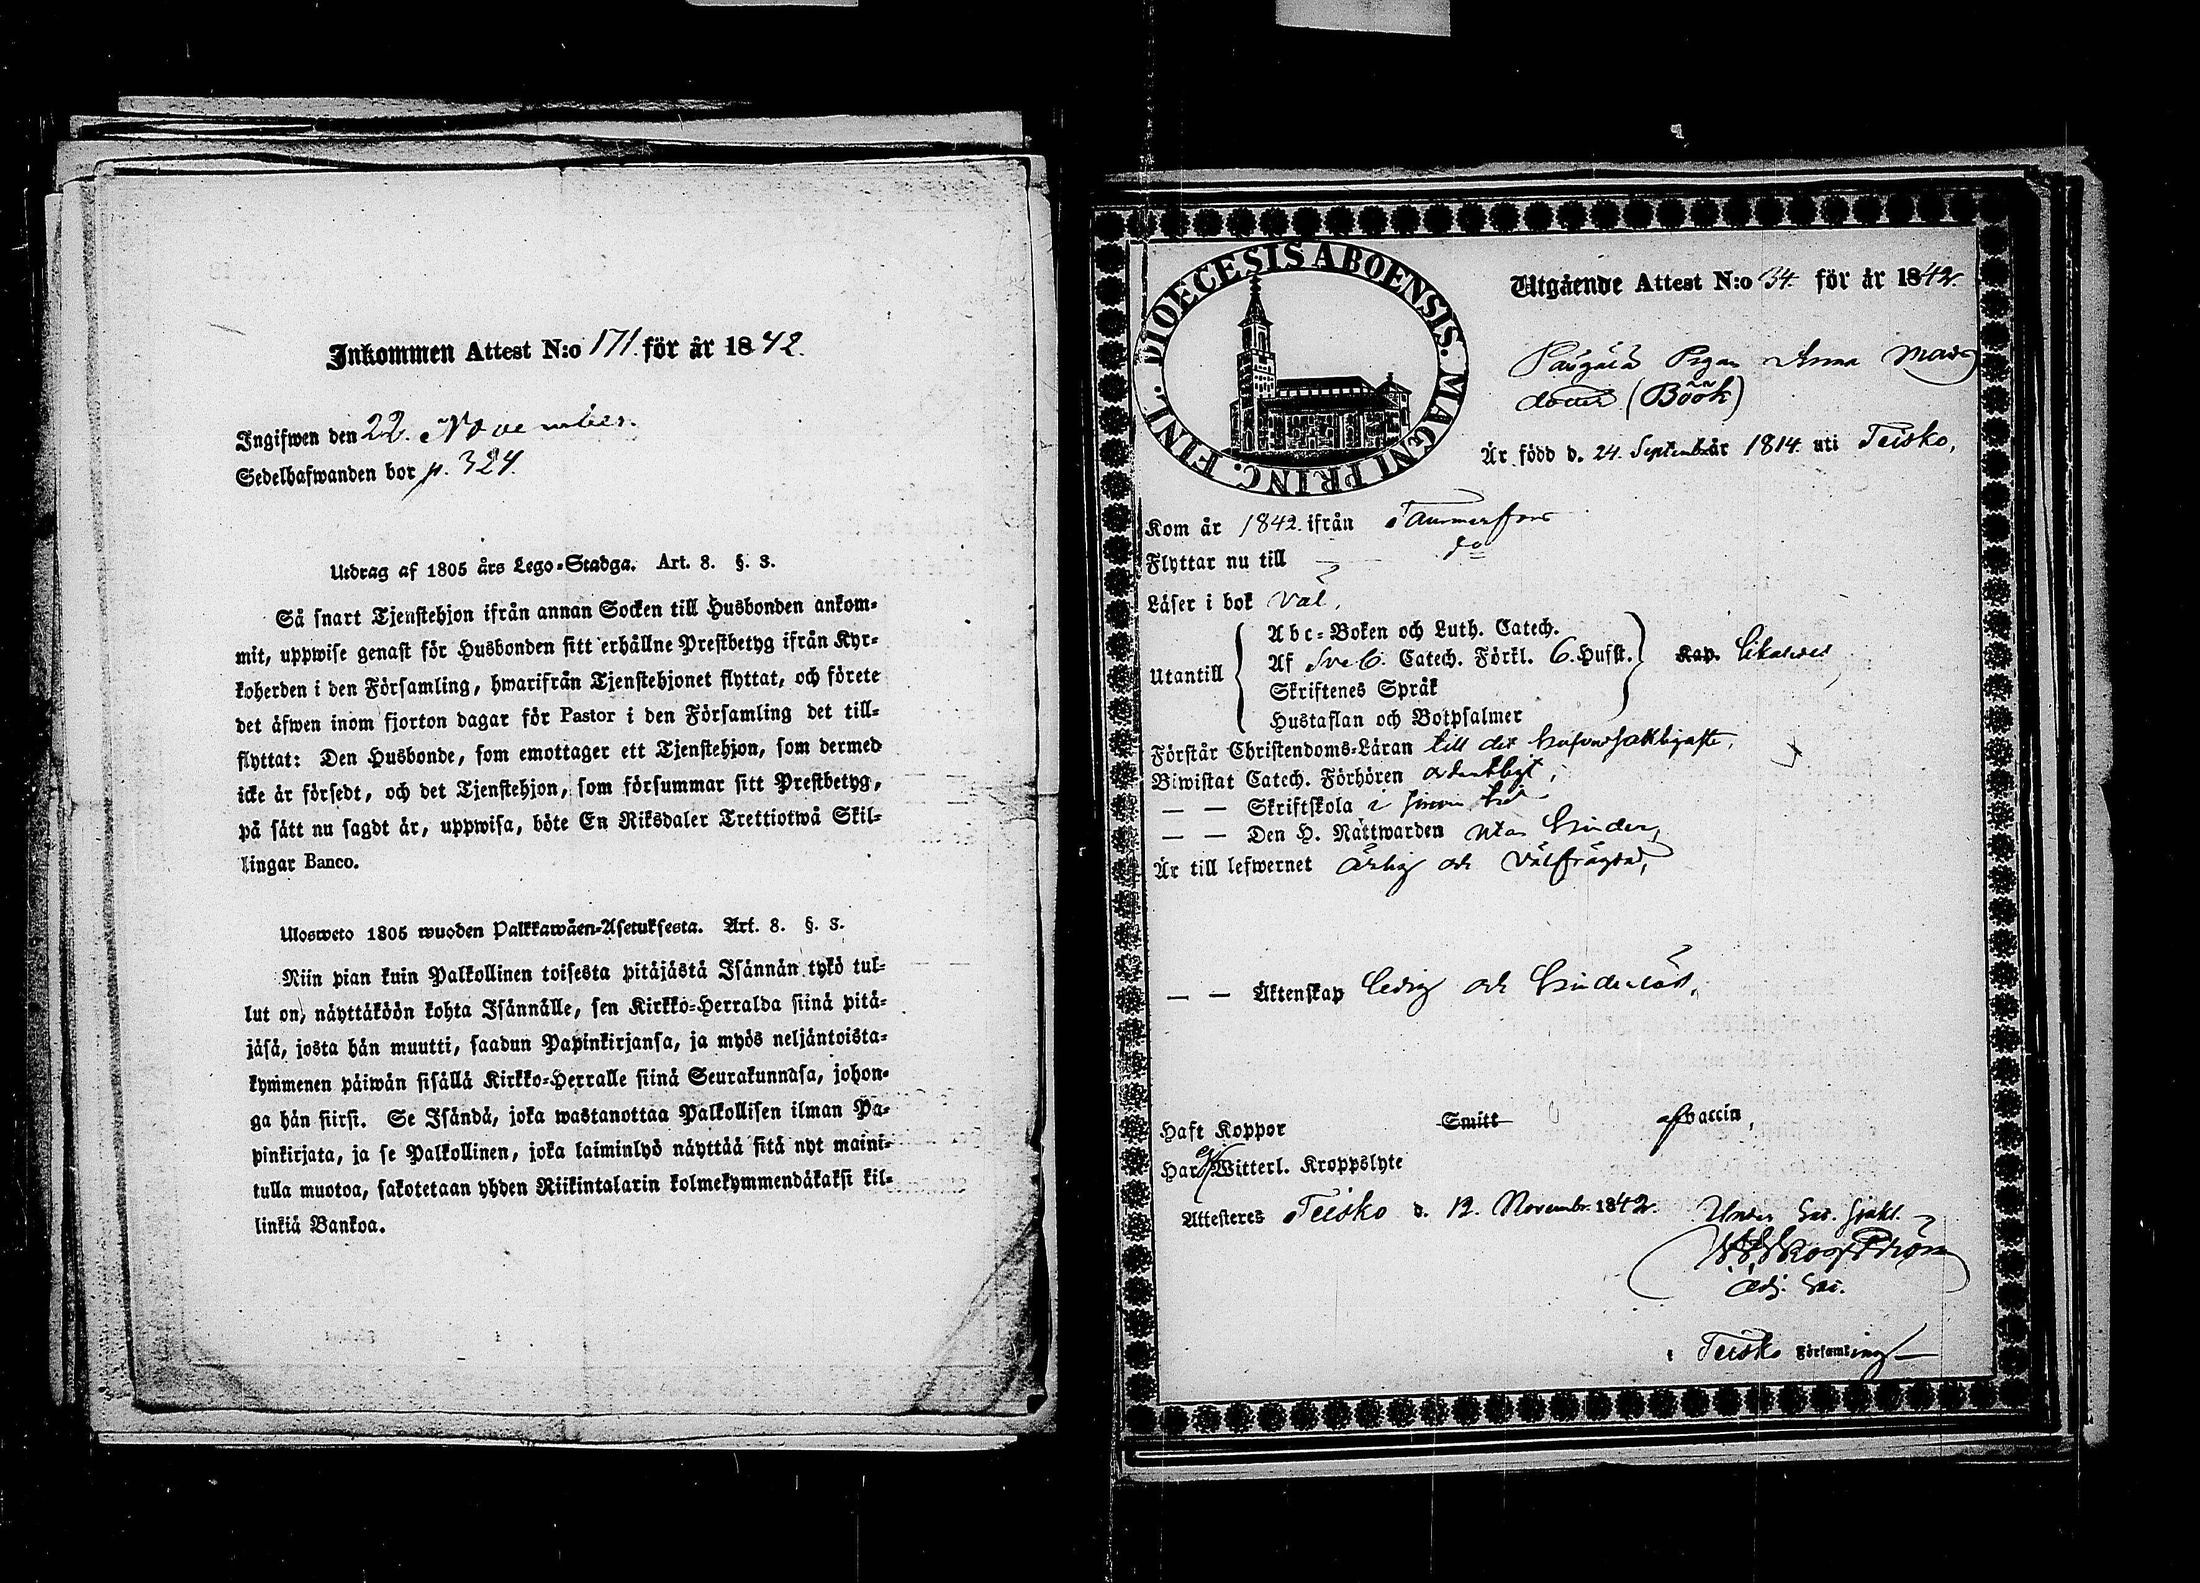 Inkommen Attest N:o 171. för år 1842.
Ingifwen den 22. November.
Sedelhafwanden bor p. 324.
Utdrag af 1805 års Lego-Stadga. Art. 8. §. 3.
Så snart Tjenstehjon ifrån annan Socken till Husbonden ankom-
mit, uppwise genast för Husbonden sitt erhållne Prestbetyg ifrån Kyr-
koherden i den Församling, hwarifrån Tjenstehjonet flyttat, och förete
det äfwen inom fjorton dagar för Pastor i den Församling det till-
flyttat: Den Husbonde, som emottager ett Tjenstehjon, som dermed
icke är försedt, och det Tjenstehjon, som försummar sitt Prestbetyg,
på sätt nu sagdt är, uppwisa, böte En Riksdaler Trettiotwå Skil-
lingar Banco.
Ulosweto 1805 wuoden Palkkawäen-Asetuksesta. Art. 8. §. 3.
Niin pian kuin Palkollinen toisesta pitäjästä Isännän tykö tul-
lut on, näyttäköön kohta Isännälle, sen Kirkko-Herralda siinä pitä-
jäsä, josta hän muutti, saadun Papinkirjansa, ja myös neljäntoista-
kymmenen päiwän sisällä Kirkko-Herralle siinä Seurakunnasa, johon-
ga hän siirsi. Se Isändä, joka wastanottaa Palkollisen ilman Pa-
pinkirjata, ja se Palkollinen, joka laiminlyö näyttää sitä nyt maini-
tulla muotoa, sakotetaan yhden Riikintalarin kolmekymmendäkaksi kil-
linkiä Bankoa.
DIOECESIS ABOENSIS. MAGNI PRINC. FINL.
Utgående Attest N:o 34. för år 1842.
Pigan Anna Mats
dotter (Böök)
Är född d. 24. September år 1814. uti Teisko,
Kom år 1842. ifrån Tammerfors
Flyttar nu till do
Läser i bok väl,
Utantill
Abc-Boken och Luth. Catech.
Af Sveb. Catech. Förkl. 6. Husst. Kap.
Skriftenes Språk
Hustaflan och Botpsalmer
Förstår Christendoms-Läran till det hufvudsakligaste,
Biwistat Catech. Förhören ordentligt,
— — Skriftskola i sinom tid
— — Den H. Nattwarden utan hinder,
Är till lefwernet ärlig och välfrägdad,
— — Äktenskap ledig och hinderlös,
Haft Koppor Smitt af vaccin,
Har ej Witterl. Kroppslyte
Attesteres Teisko d. 12. Novembr. 1842.
Adj. Sac.
i Teisko Församling